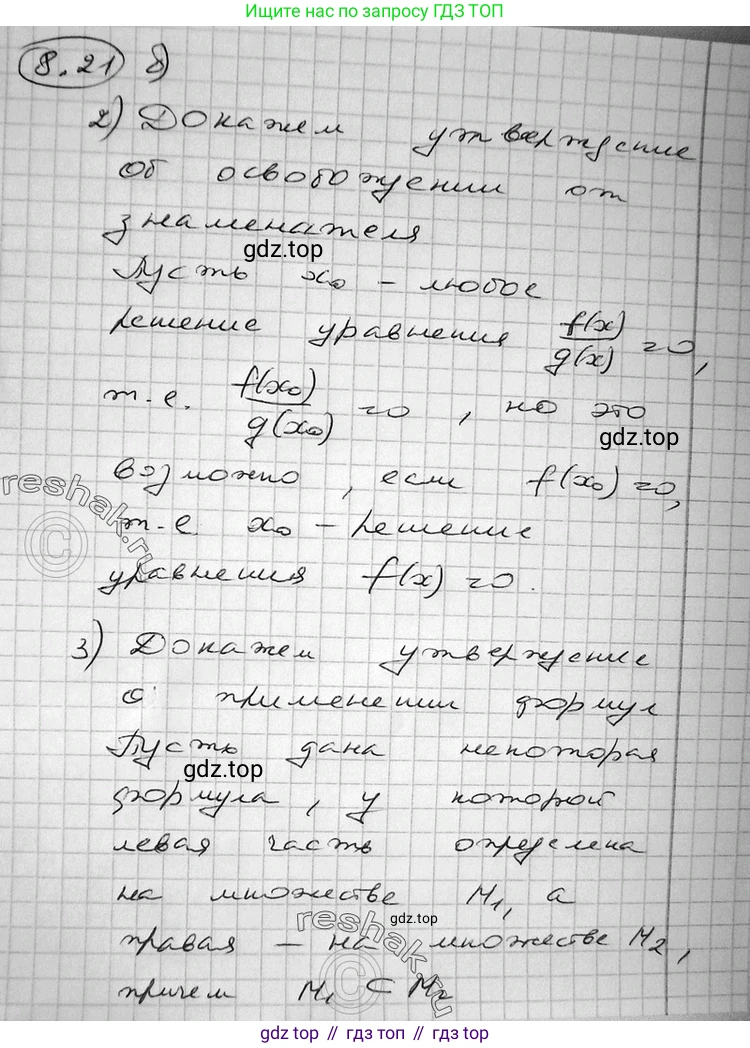 Ищите нас по запросу ГДЗ ТОП
8.21 б)
2) Докажем утверждение
об освобождении от
знаменателя
gdz.top
Пусть x₀ – любое
решение уравнения f(x)/g(x) = 0,
т.е. f(x₀)/g(x₀) = 0, но это
gdz.top
возможно, если f(x₀) = 0,
reshak.ru
т.е. x₀ – решение
©
уравнения f(x) = 0.
3) Докажем утверждение
о применении формул
Пусть дана некоторая
gdz.top
формула, у которой
левая часть определена
на множестве M₁, а
reshak.ru
gdz.top
правая – на множестве M₂,
©
причем M₁ ⊂ M₂
gdz top // гдз топ // gdz.top